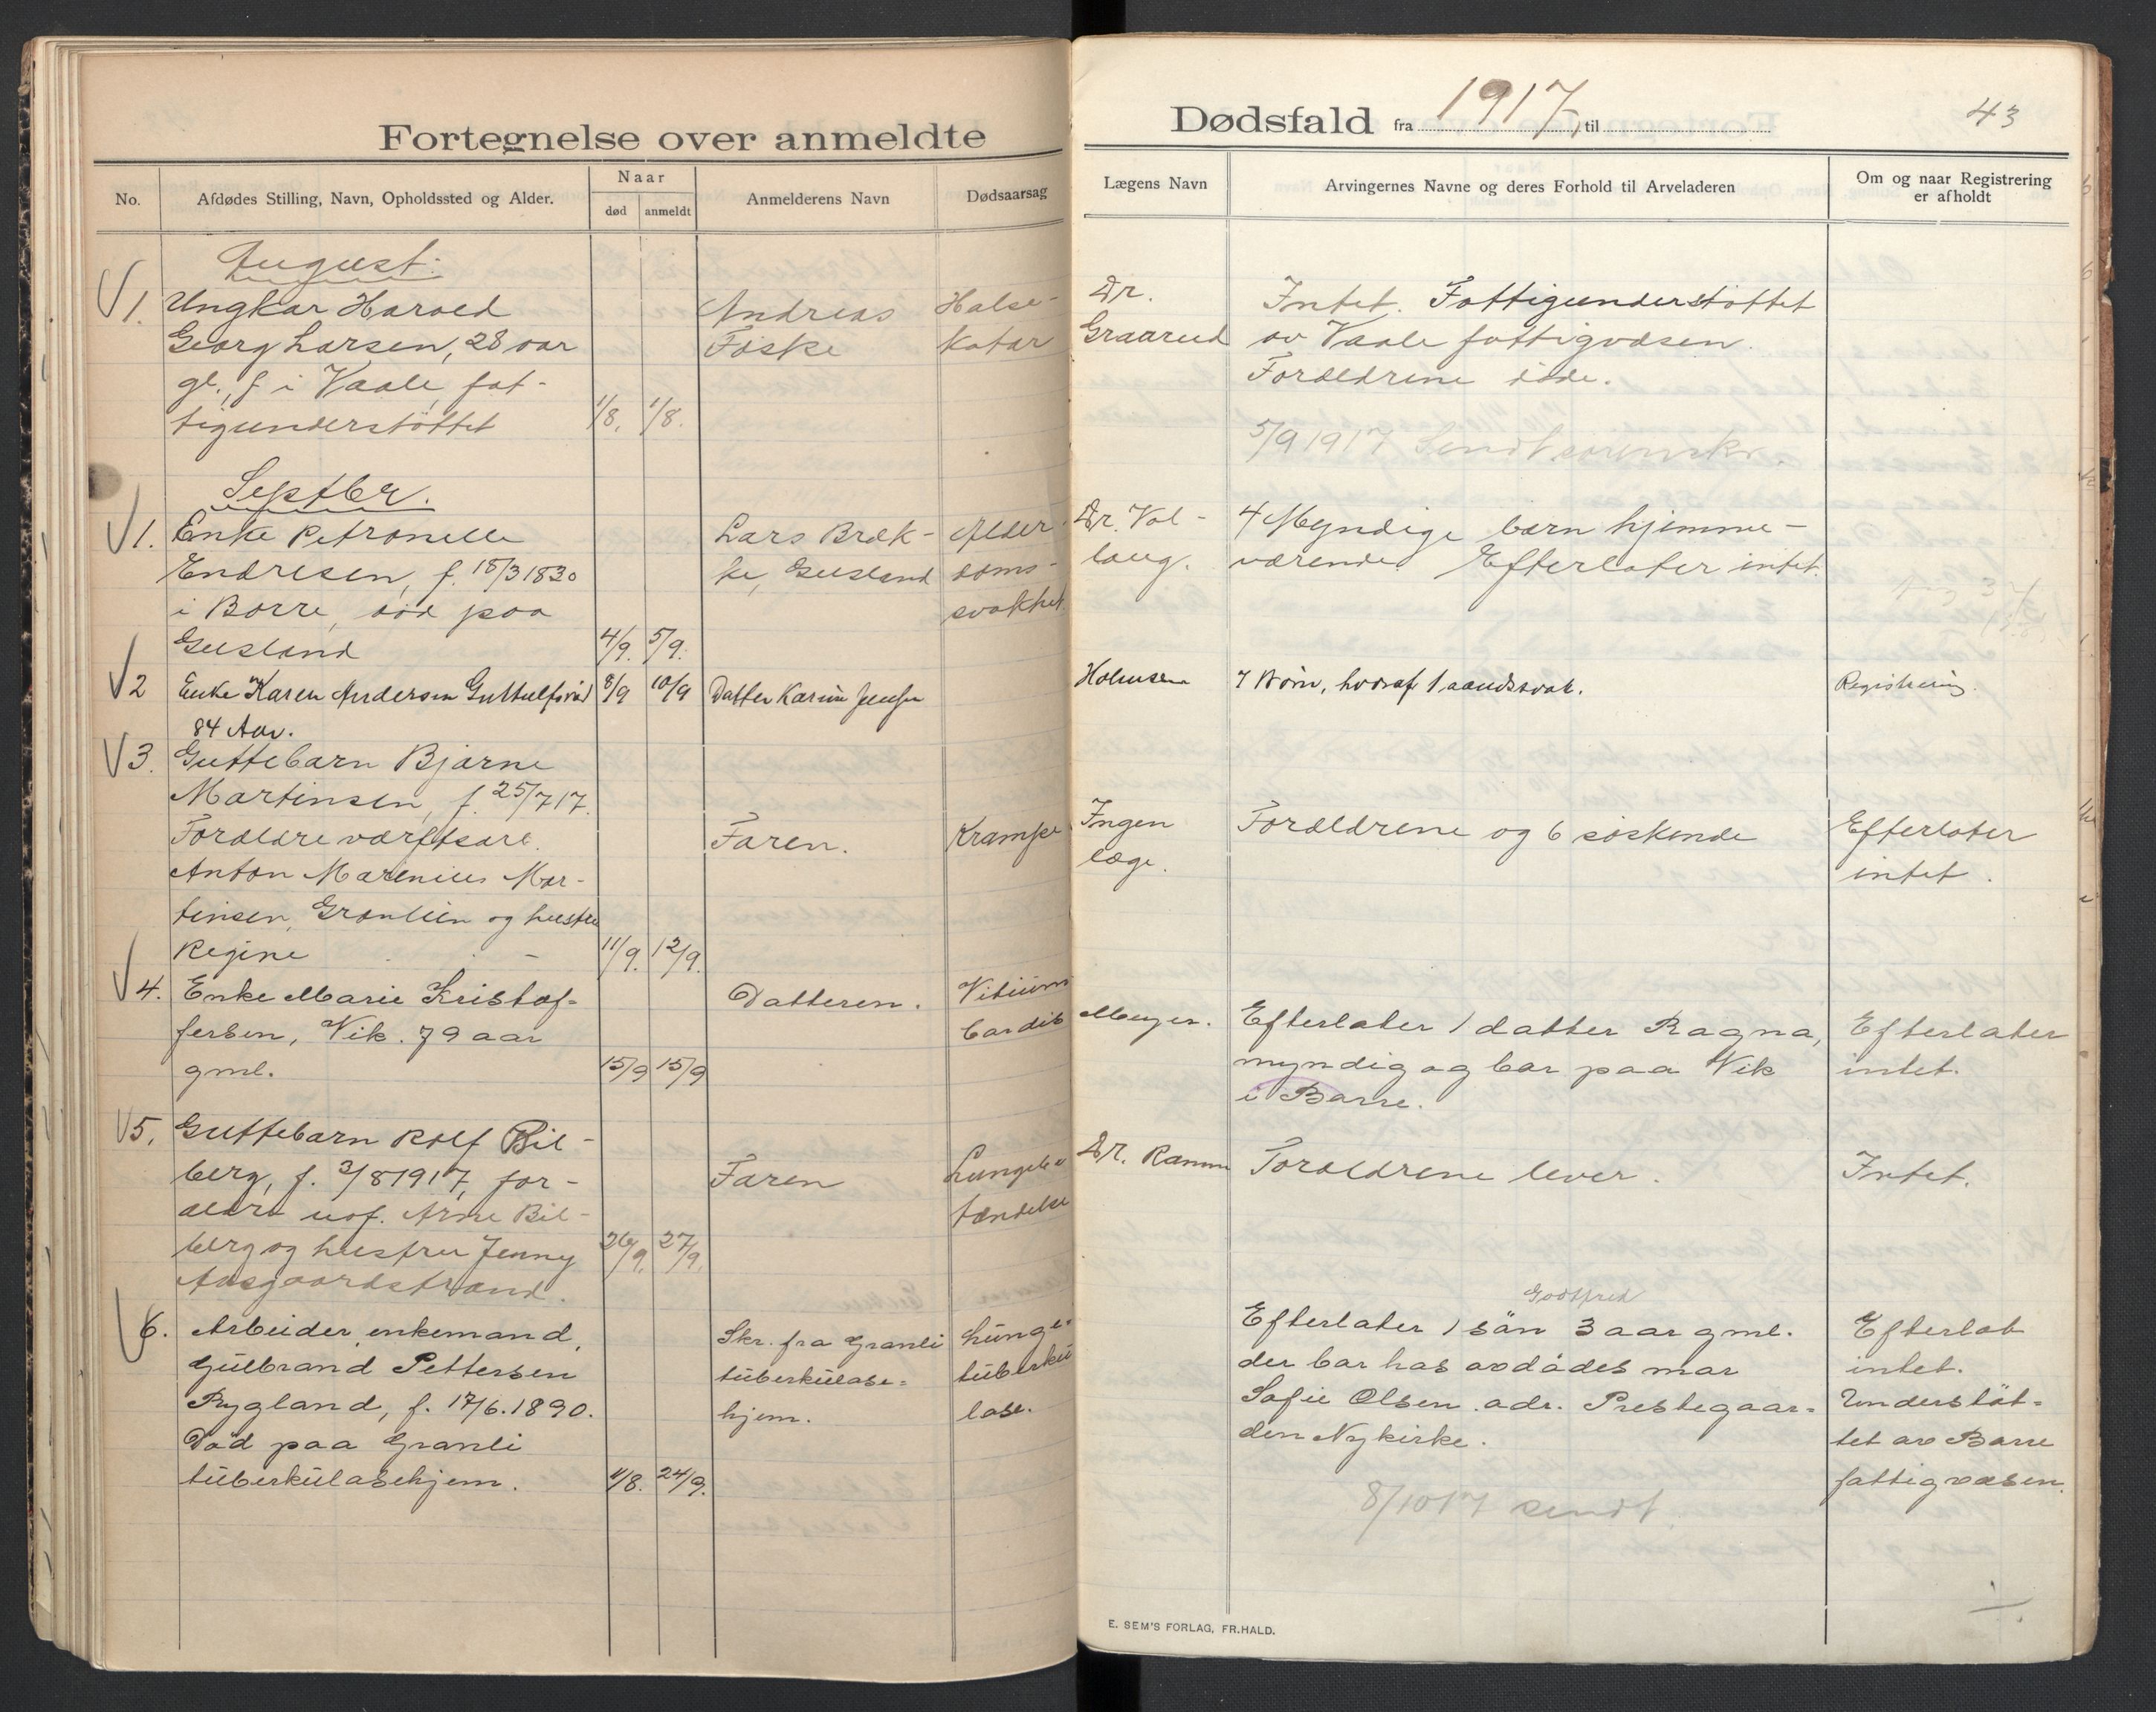 Fortegnelse over anmeldte
No.
Afdødes Stilling, Navn, Opholdssted og Alder.
Naar
død
anmeldt
Anmelderens Navn
Dødsaarsag
August:
1. Ungkar Harald
Georg Larsen, 28 aar
gl., f. i Vaale, fat-
tigunderstöttet
1/8. 1/8.
Andreas
Föske
Halse-
katar
Septbr.
1. Enke Petronelle
Endresen, f. 18/3 1830
i Borre, död paa
Gusland
4/9. 5/9.
Lars Bræk-
ke, Gusland
Alder-
doms-
svakhet
2 Enke Karen Andersen
84 Aar.
8/9 10/9
Datter Karine Jensen
3. Guttebarn Bjarne
Martinsen, f. 25/7 17.
Forældre værftsarb.
Anton Marenius Mar-
tinsen, Grönlien og hustru
Regine
11/9. 12/9.
Faren.
Krampe
4. Enke Marie Kristof-
fersen, Vik. 79 aar
gml.
15/9 15/9
Datteren.
Vitium
Cordis
5. Guttebarn Rolf Bil-
berg, f. 3/8 1917, for-
ældre uof. Arne Bil-
berg og hustru Jenny
Aasgaardstrand.
26/9. 27/9.
Faren
Lungebe
tændelse
6. Arbeider, enkemand,
Gulbrand Pettersen
Rygland, f. 17/6. 1890.
Död paa Granli
tuberkulosehjem.
1/8. 24/9.
Skr. fra Granli
tuberkulose=
hjem.
Lunge=
tuberku
lose.
Dødsfald fra 1917, til
43
Lægens Navn
Arvingernes Navne og deres Forhold til Arveladeren
Om og naar Registrering
er afholdt
Dr.
Graarud
Intet. Fattigunderstöttet
av Vaale fattigvæsen.
Forældrene döde.
5/9 1917 Sendt sorenskr.
Dr. Vol-
laug.
4 Myndige barn hjemme-
værende. Efterlater intet.
Holmsen
7 Börn, hvoraf 1 aandssvak.
Registrering.
Ingen
læge.
Forældrene og 6 söskende
Efterlater
intet.
Meyer.
Efterlater 1 datter Ragna,
myndig og bor paa Vik
i Borre.
Efterlater
intet.
Dr. Ramm
Forældrene lever.
Intet.
Godtfred
Efterlater 1 sön 3 aar gml.
der bor hos avdödes mor
Sofie Olsen. adr. Prestegaar=
den Nykirke.
Efterlot
intet.
Understöt=
tet av Borre
fattigvæsen.
8/10 17 sendt
E. SEM'S FORLAG, FR.HALD.